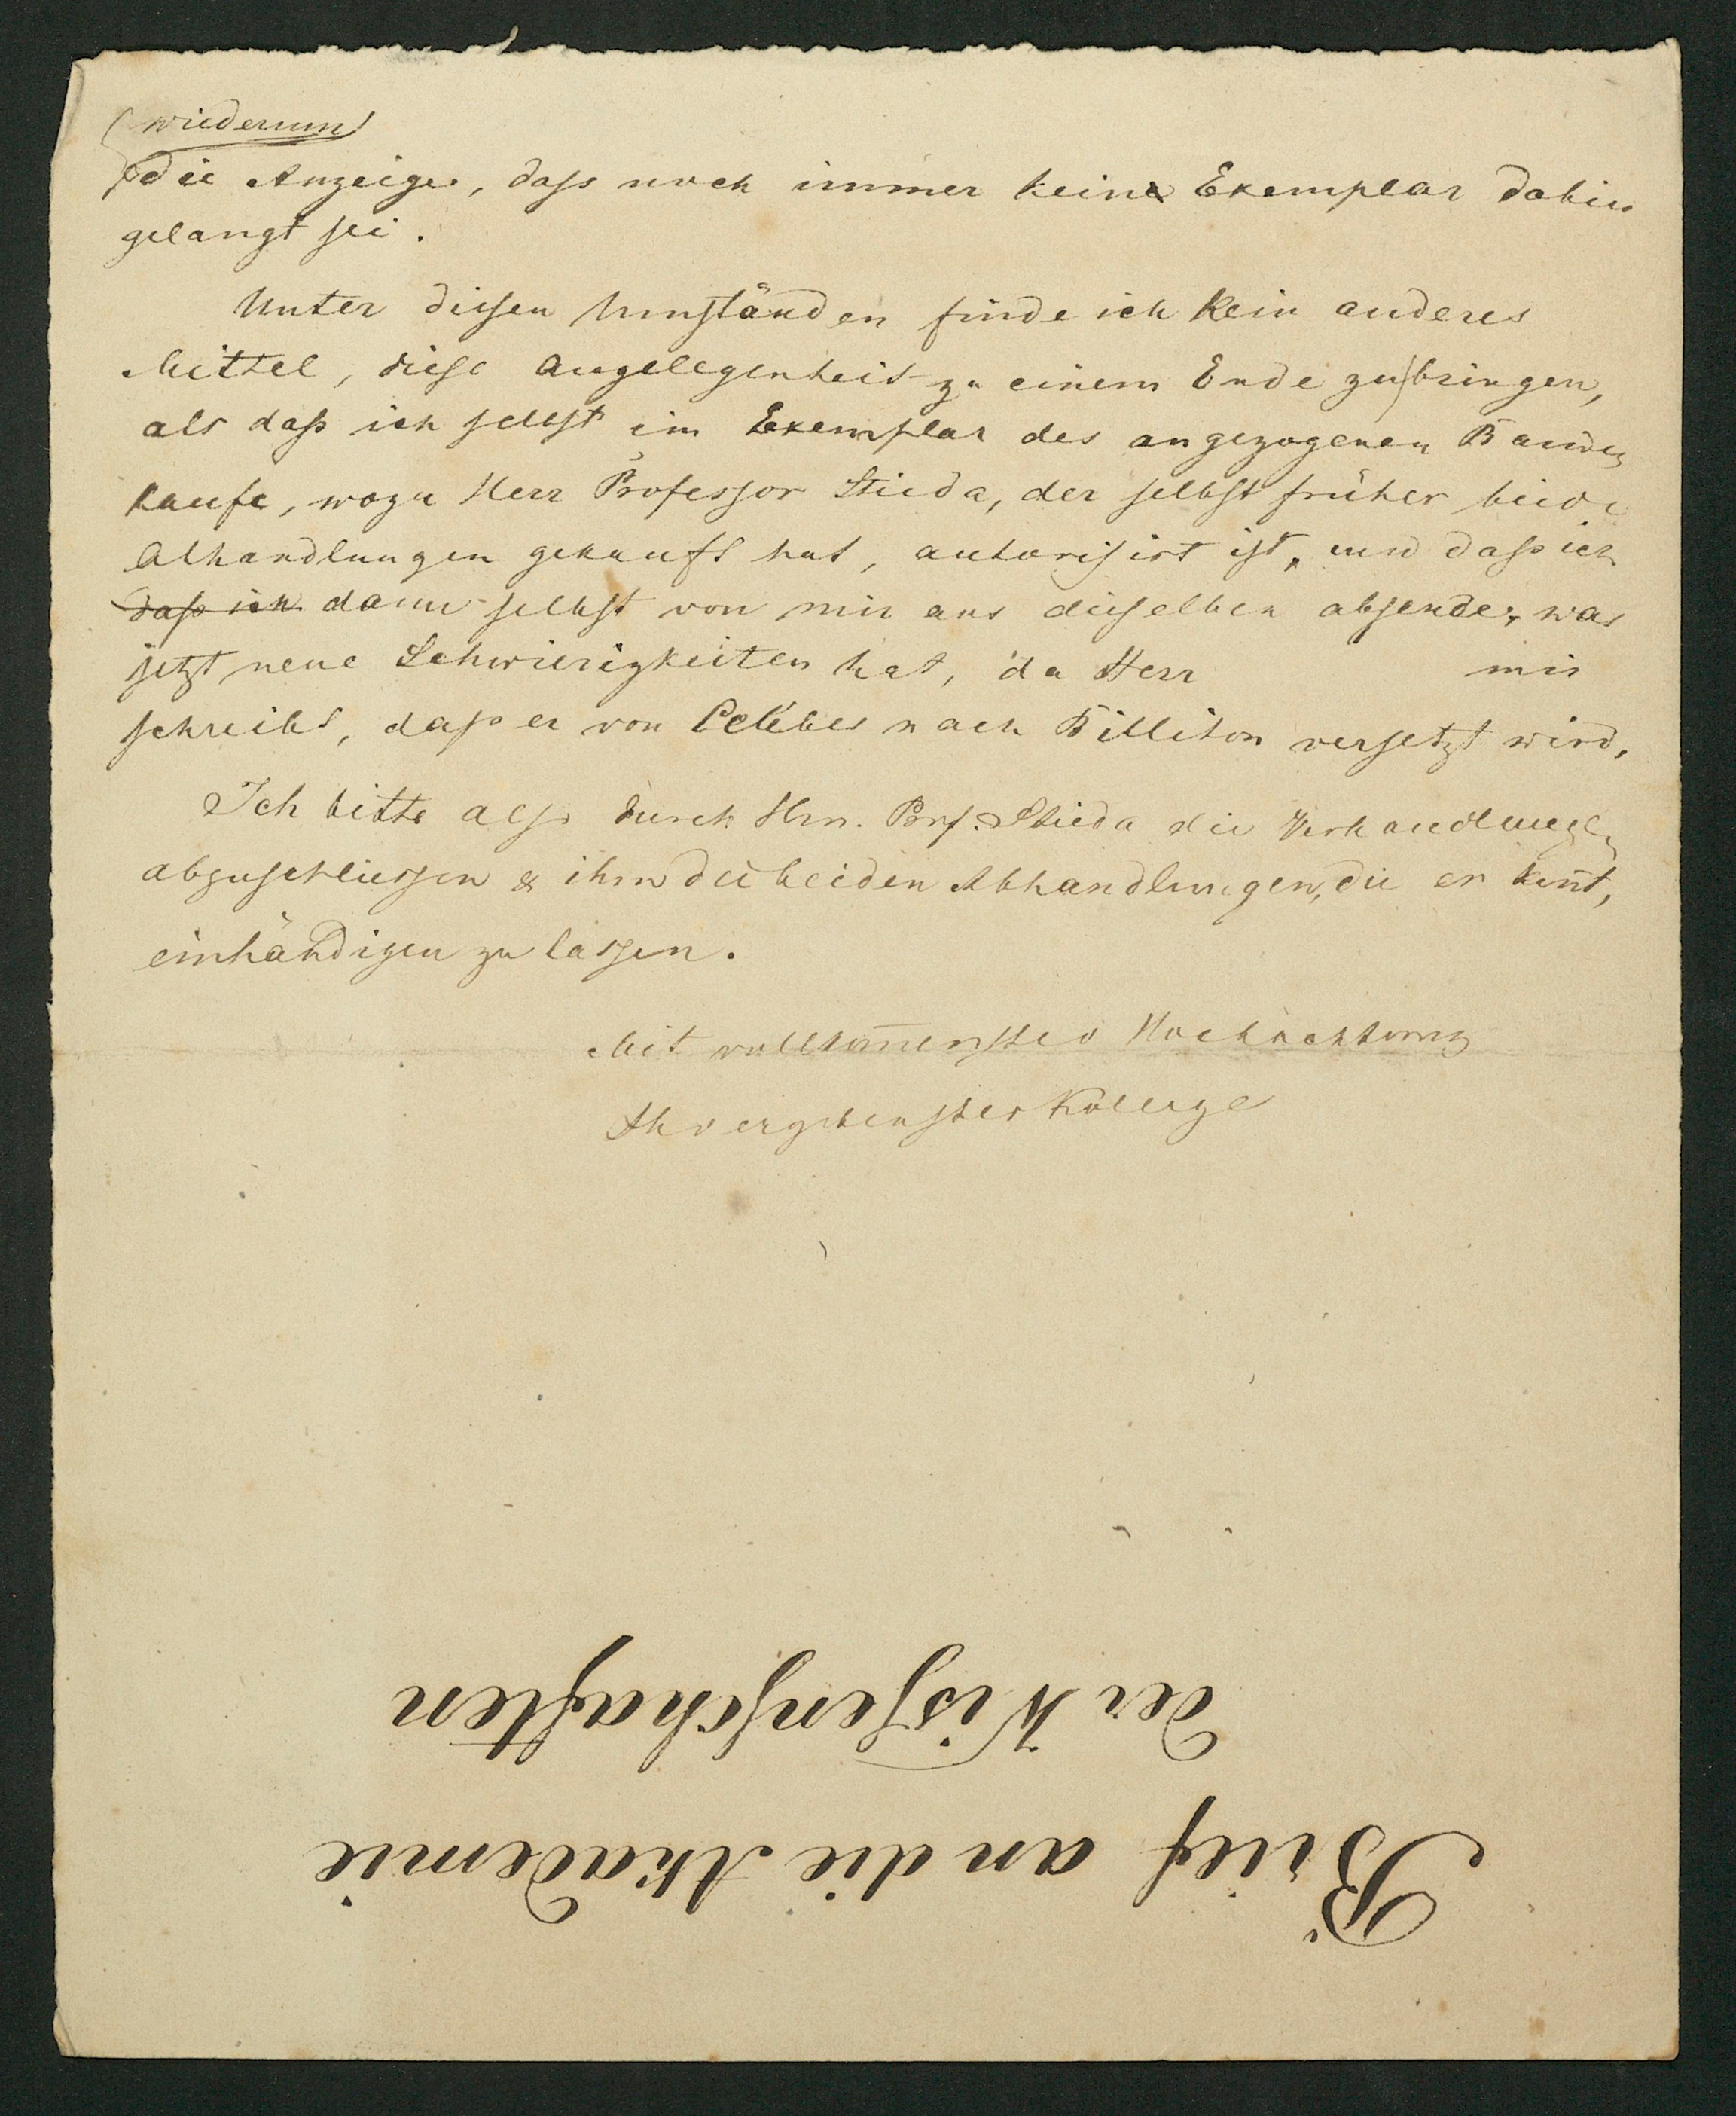 wiederum
die Anzeige, daſs noch immer kein Exemplar dahin
gelangt sei.
Unter diesen Umständen finde ich kein anderes
Mittel, diese Angelegenheit zu einem Ende zu bringen,
als daß ich selbst ein Exemplar des angezogenen Bandes
kaufe, wozu Herr Professor Stieda, der selbst früher beide
Abhandlungen gekauft hat, autorisirt ist, und daß ich
daß ich dann selbst von mir aus dieselben absende, was
jetzt neue Schwierigkeiten hat, da Herr mir
schreibt, daß er von Celebes nach Billiton versetzt wird.
Ich bitte also durch Hrn. Prof. Stieda die Verhandlungen
abzuschliessen & ihm die beiden Abhandlungen, die er keñt,
einhändigen zu lassen.
Mit vollkom̄enster Hochachtung
Ihr ergebenster Kollege
Brief an die Akademie
der Wissenschaften